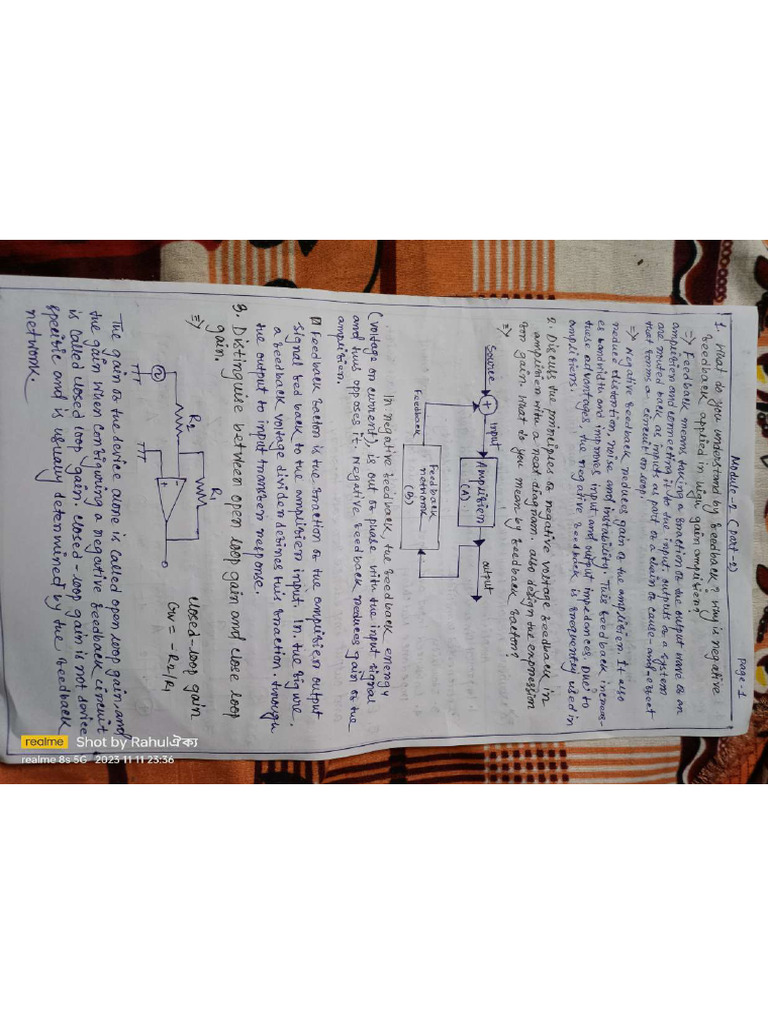 Module-2 (part-2)
page-1
1. What do you understand by feedback? Why is negative
feedback applied in high gain amplifier?
=> Feedback means taking a fraction of the output wave of an
amplifier and connecting it to the input. outputs of a system
are routed back as inputs as part of a chain of cause-and-effect
that forms a circuit or loop.
=> Negative feedback reduces gain of the amplifier. It also
reduce distortion, noise and instability. This feedback increas-
es bandwidth and improves input and output impedances. Due to
these advantages, the negative feedback is frequently used in
amplifiers.
2. Discuss the principles of negative voltage feedback in
amplifier with a neat diagram. also design the expression
for gain. What do you mean by feedback factor?
=>
Source
+
input
Amplifier
(A)
output
Feedback
Feedback
network
(B)
In negative feedback, the feedback energy
(voltage or current), is out of phase with the input signal
and thus opposes it. Negative feedback reduces gain of the
amplifier.
Feedback factor is the fraction of the amplifier output
signal fed back to the amplifier input. In the figure,
a feedback voltage divider defines this fraction. through
the output to input transfer response.
3. Distinguise between open loop gain and close loop
gain.
=>
R1
R2
-
+
closed-loop gain
Gw = -R2/R1
The gain of the device alone is called open loop gain, and
the gain when configuring a negative feedback circuit
is called closed loop gain. closed-loop gain is not device
specific and is usually determined by the feedback
network.
realme
Shot by Rahulঐক্য
realme 8s 5G 2023 11 11 23:36